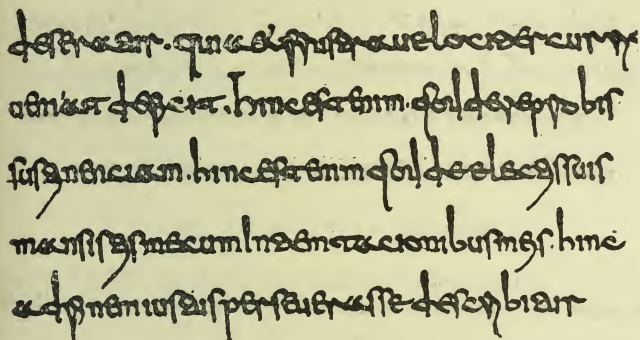 deseritur. quia et frustra uelociter currit
ueniat deficit. hinc est enim quod de reprobis
sustinenciam. hinc est enim quod de electis suis
mansistis mecum In tentacionibus meis. hinc
ad finem iustus perseuerasse describitur